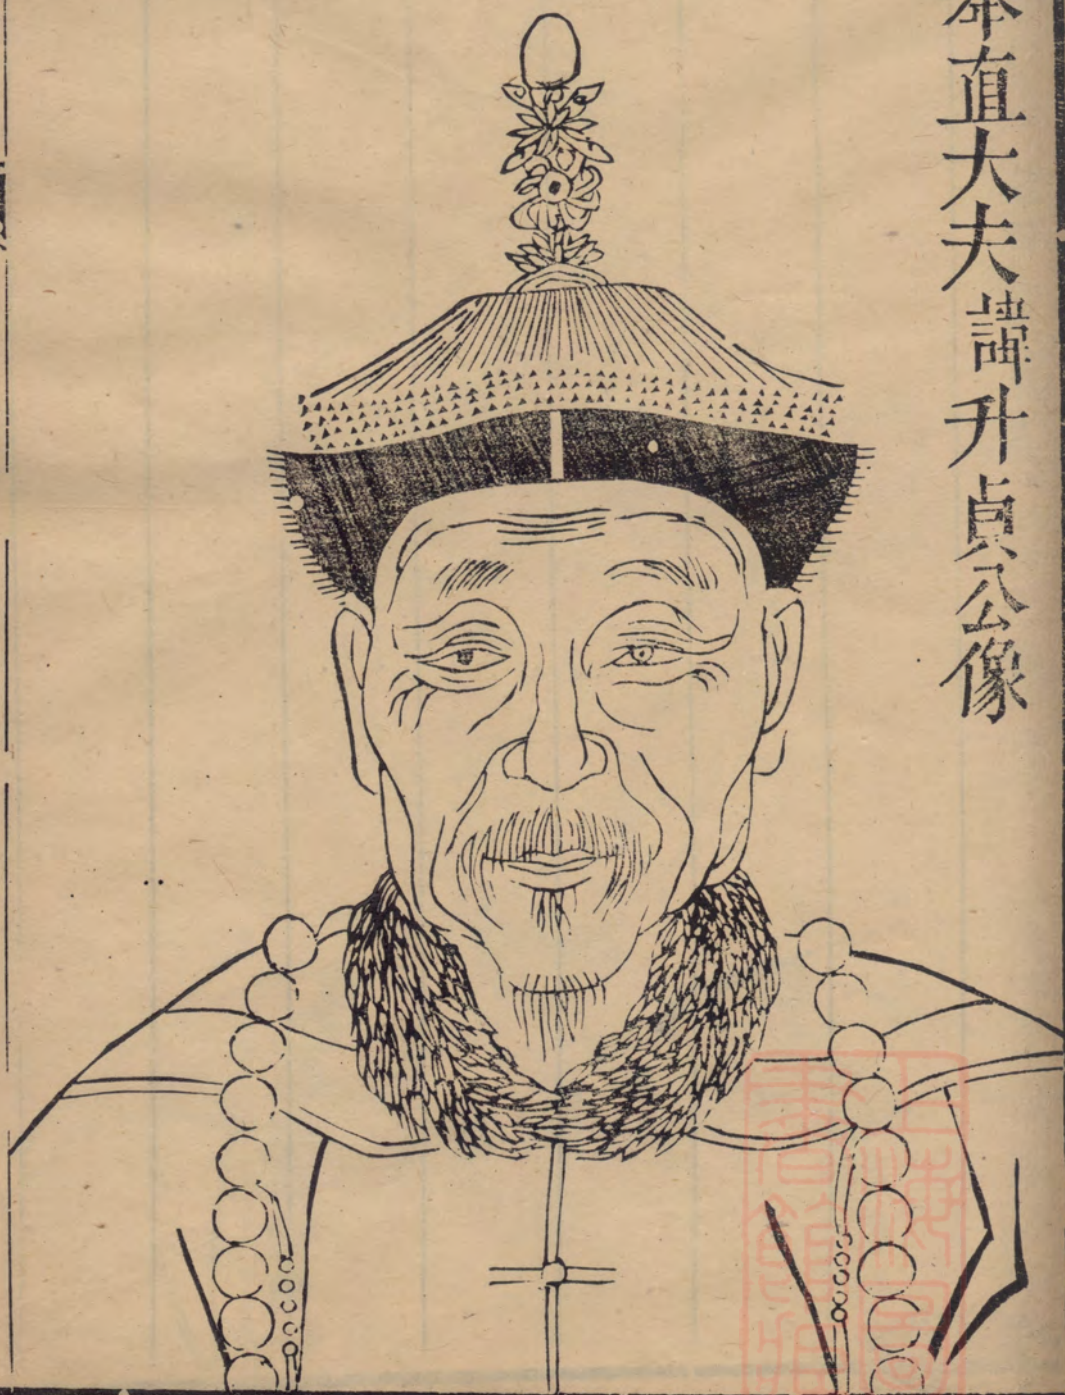 奉直大夫諱升貞公像